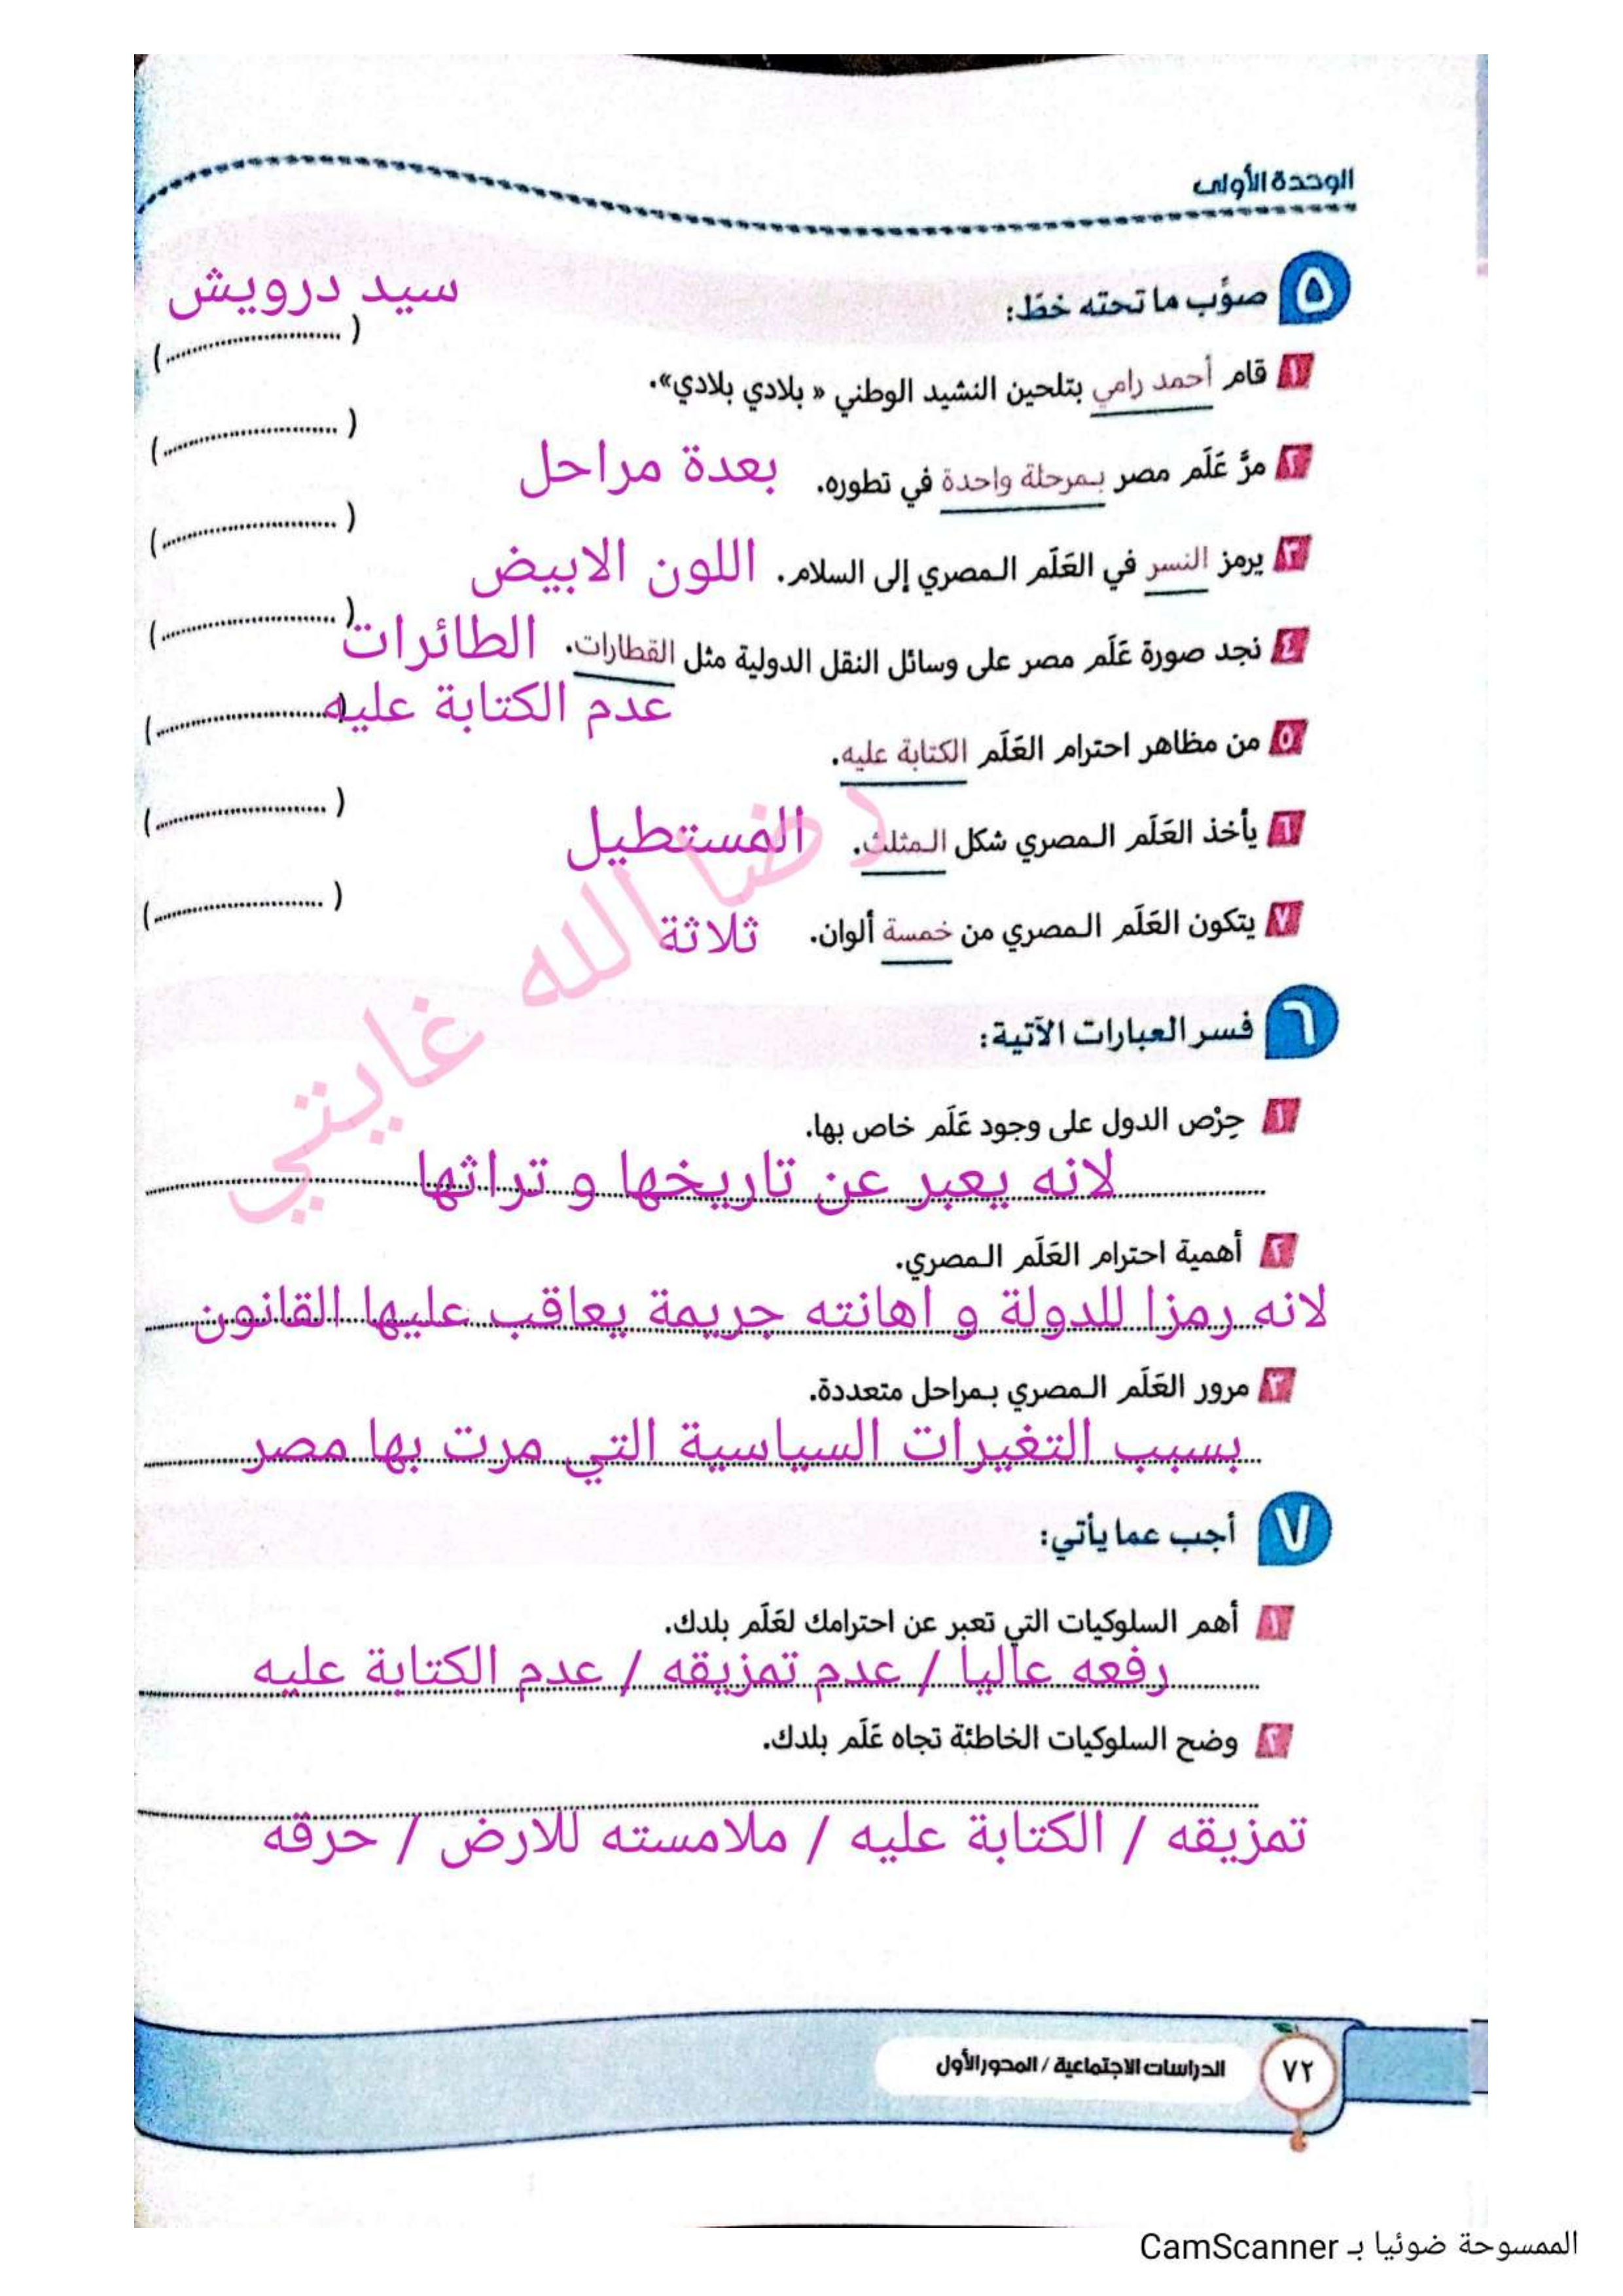 الوحدة الأولى
٥ صوِّب ما تحته خطّ:
سيد درويش
١ قام أحمد رامي بتلحين النشيد الوطني « بلادي بلادي». (..............................)
٢ مرَّ عَلَم مصر بمرحلة واحدة في تطوره. بعدة مراحل (..............................)
٣ يرمز النسر في العَلَم المصري إلى السلام. اللون الابيض (..............................)
٤ نجد صورة عَلَم مصر على وسائل النقل الدولية مثل القطارات. الطائرات (..............................)
عدم الكتابة عليه
٥ من مظاهر احترام العَلَم الكتابة عليه. (..............................)
٦ يأخذ العَلَم المصري شكل المثلث. المستطيل (..............................)
٧ يتكون العَلَم المصري من خمسة ألوان. ثلاثة (..............................)
رضا الله غايتي
٦ فسر العبارات الآتية:
١ حِرْص الدول على وجود عَلَم خاص بها.
لانه يعبر عن تاريخها و تراثها
٢ أهمية احترام العَلَم المصري.
لانه رمزا للدولة و اهانته جريمة يعاقب عليها القانون
٣ مرور العَلَم المصري بمراحل متعددة.
بسبب التغيرات السياسية التي مرت بها مصر
٧ أجب عما يأتي:
١ أهم السلوكيات التي تعبر عن احترامك لعَلَم بلدك.
رفعه عاليا / عدم تمزيقه / عدم الكتابة عليه
٢ وضح السلوكيات الخاطئة تجاه عَلَم بلدك.
تمزيقه / الكتابة عليه / ملامسته للارض / حرقه
٧٢ الدراسات الاجتماعية / المحور الأول
الممسوحة ضوئيا بـ CamScanner